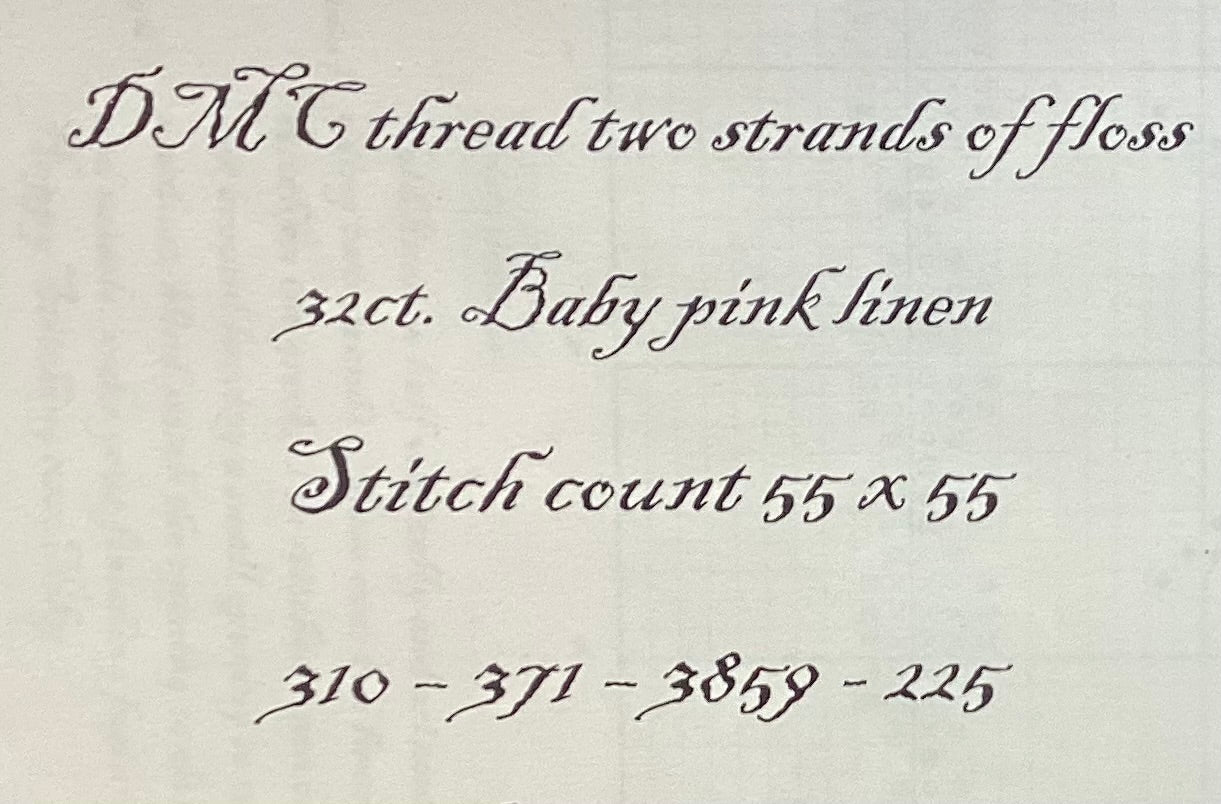 DMC thread two strands of floss
32ct. Baby pink linen
Stitch count 55 x 55
310 - 371 - 3859 - 225